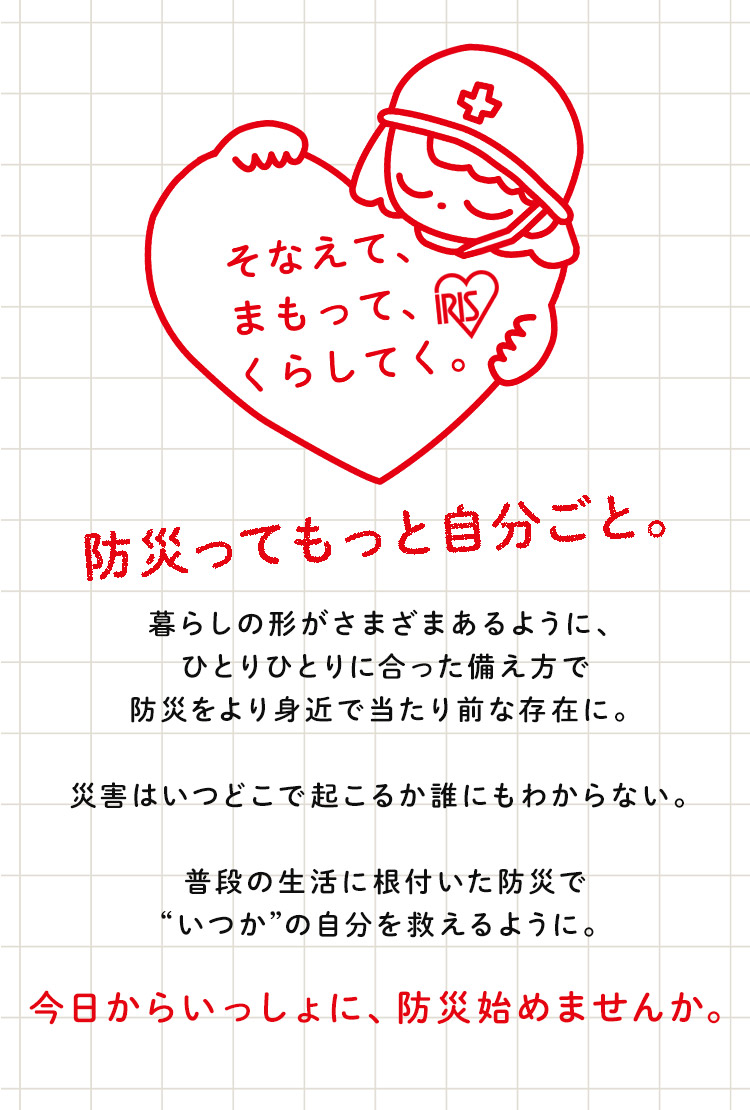 そなえて、
まもって、
くらしてく。
IRIS
防災ってもっと自分ごと。
暮らしの形がさまざまあるように、
ひとりひとりに合った備え方で
防災をより身近で当たり前な存在に。
災害はいつどこで起こるか誰にもわからない。
普段の生活に根付いた防災で
“いつか”の自分を救えるように。
今日からいっしょに、防災始めませんか。